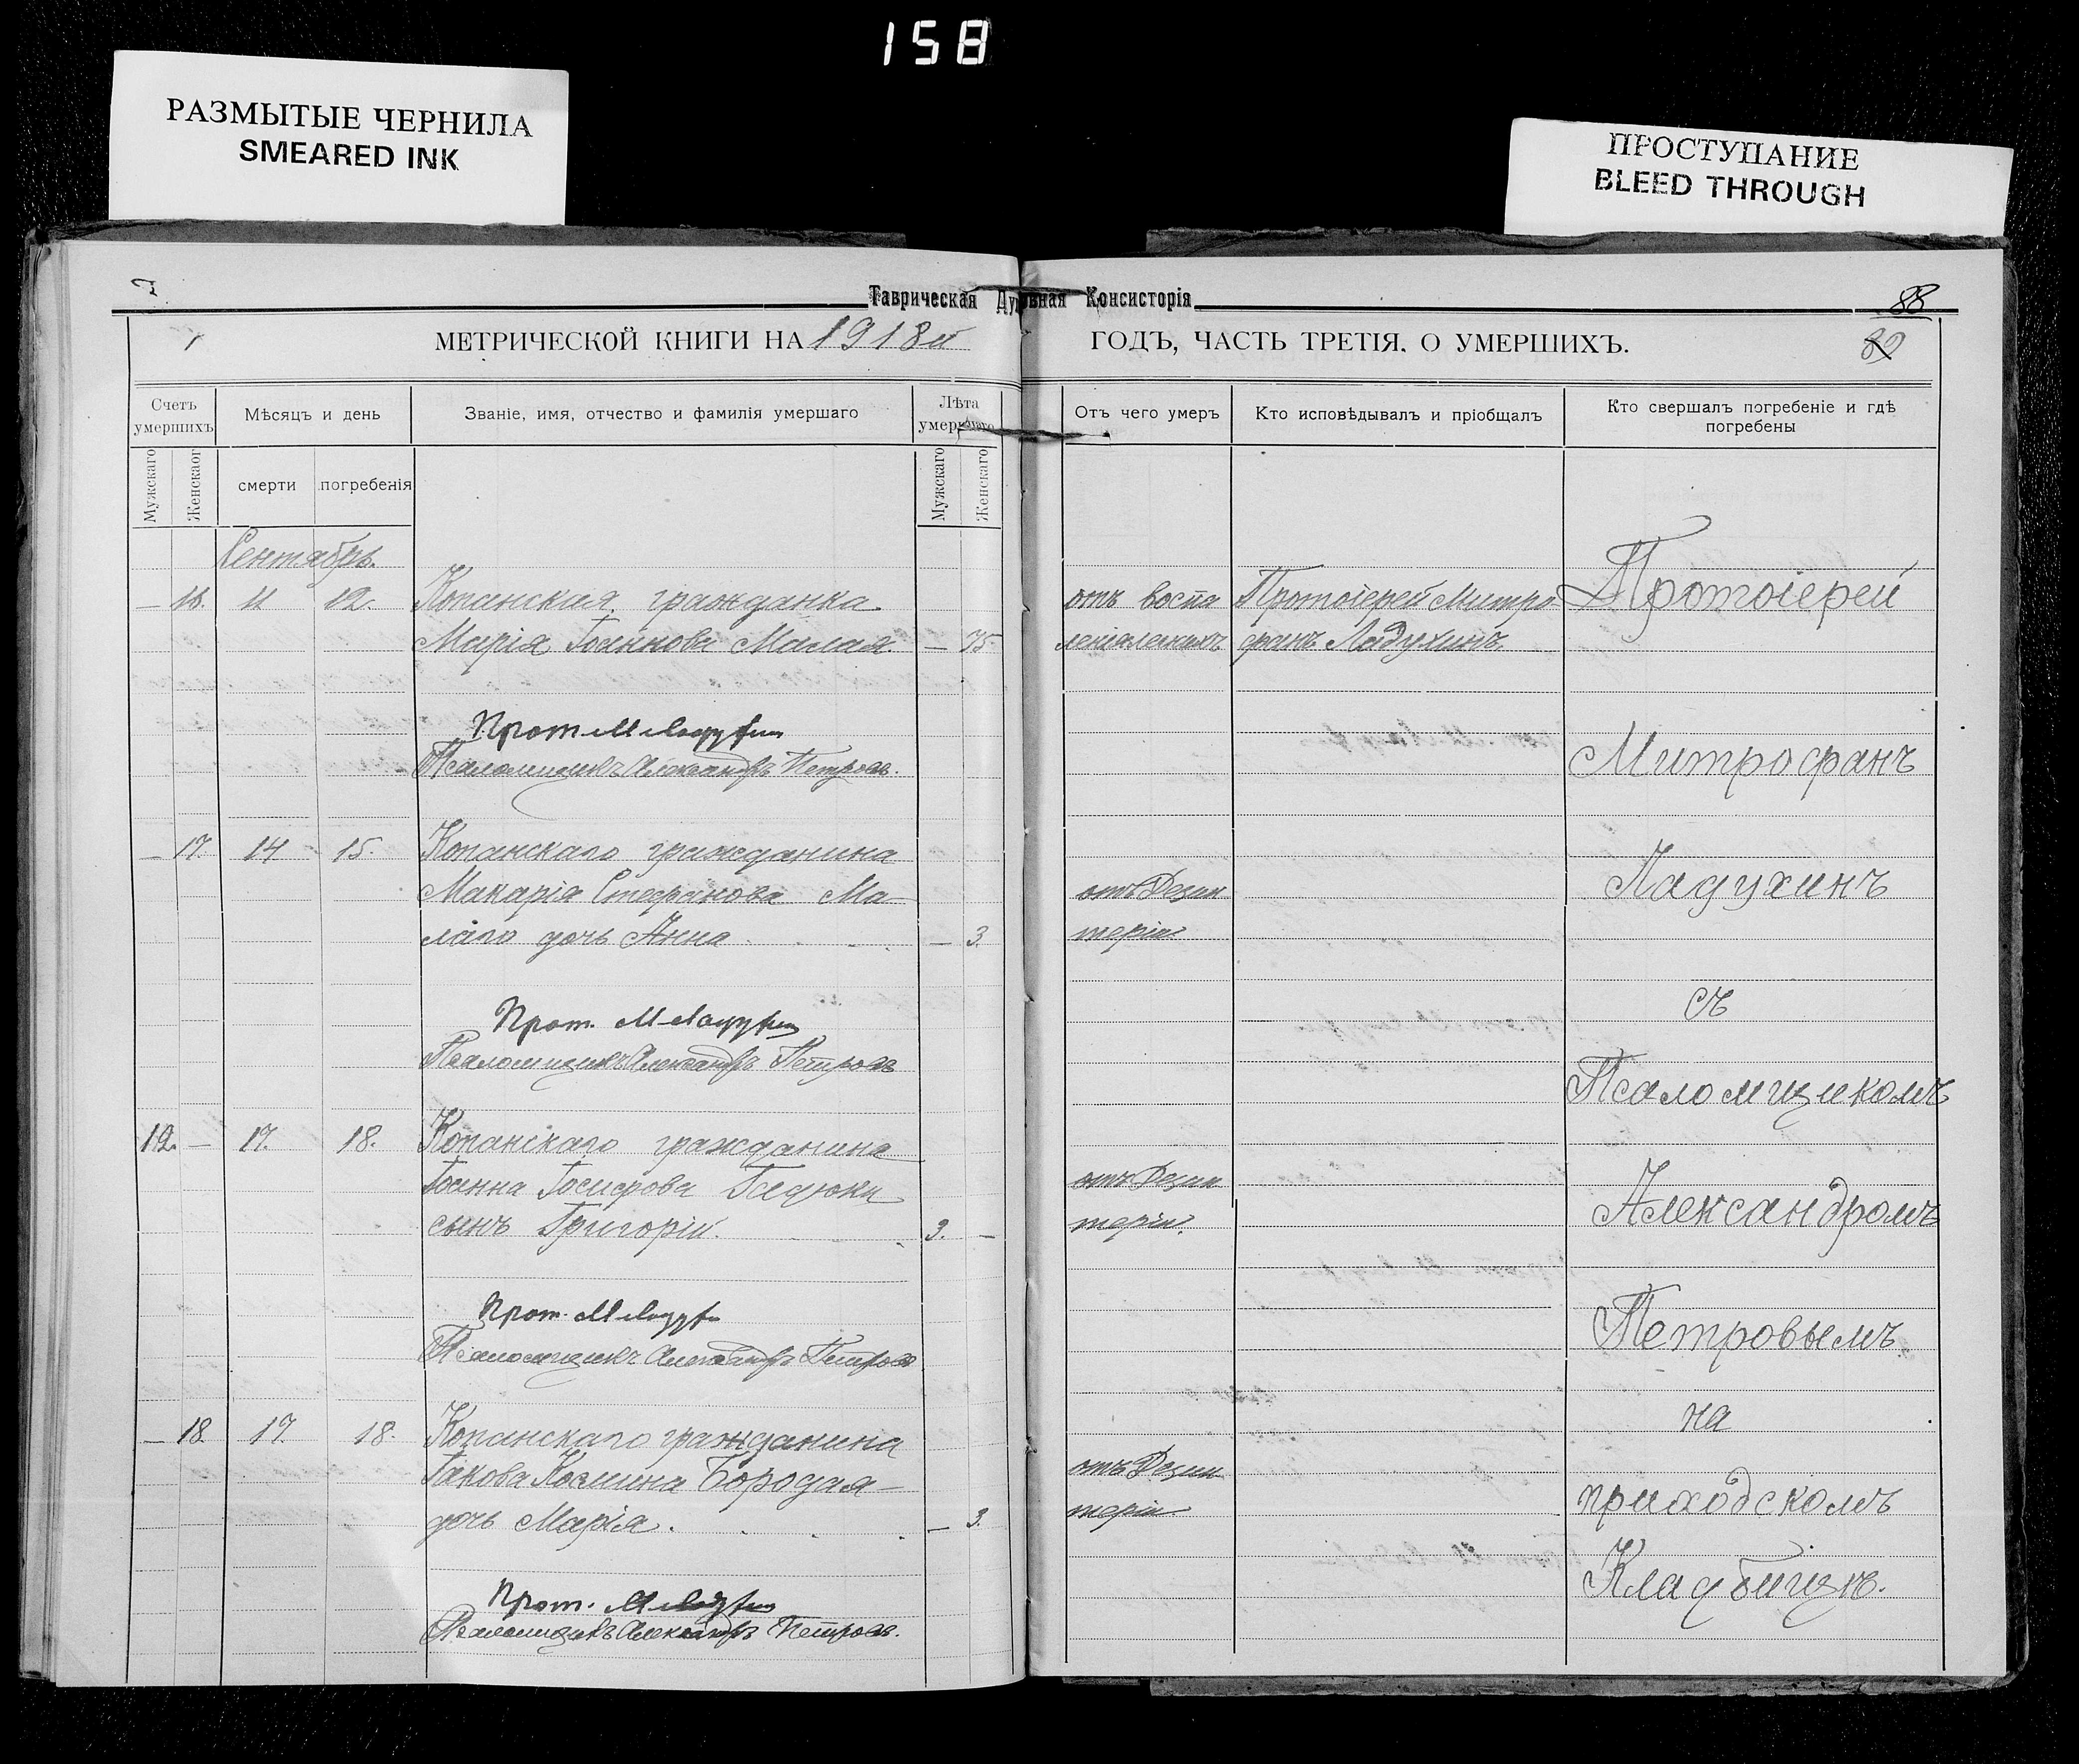 158
РАЗМЫТЫЕ ЧЕРНИЛА
SMEARED INK
ПРОСТУПАНИЕ
BLEED THROUGH
Таврическая Духовная Консисторія
88
МЕТРИЧЕСКОЙ КНИГИ НА 1918й ГОДЪ, ЧАСТЬ ТРЕТІЯ, О УМЕРШИХЪ.
89
Счетъ умершихъ
Мѣсяцъ и день
Званіе, имя, отчество и фамилія умершаго
Лѣта умершаго
Отъ чего умеръ
Кто исповѣдывалъ и пріобщалъ
Кто свершалъ погребеніе и гдѣ погребены
Мужскаго
Женскаог
смерти
погребенія
Мужскаго
Женскаго
Сентябрь.
— 16. 11 12. Копанская гражданка
Марія Іоаннова Малая — 75.
отъ воспа
леніялегкихъ
Протоіерей Митро
фанъ Ладухинъ.
Прот М Ладухин
Псаломщикъ Александръ Петровъ.
— 17. 14 15. Копанскаго гражданина
Макарія Стефанова Ма-
лаго дочь Анна — 3.
отъ Дезин
теріи.
Прот. М Ладухин
Псаломщикъ Александръ Петровъ
12. — 17. 18. Копанскаго гражданина
Іоанна Іосифова Гадюки
сынъ Григорій. 3. —
отъ Дезин
теріи.
Прот. М Ладухин
Псаломщикъ Александръ Петровъ
— 18. 17. 18. Копанскаго гражданина
Іакова Космина Бородая
дочь Марія. — 3.
отъ Дезин
теріи
Прот. М Ладухин
Псаломщикъ Александръ Петровъ.
Протоіерей
Митрофанъ
Ладухинъ
съ
Псаломщикомъ
Александромъ
Петровымъ
на
приходскомъ
Кладбищѣ.